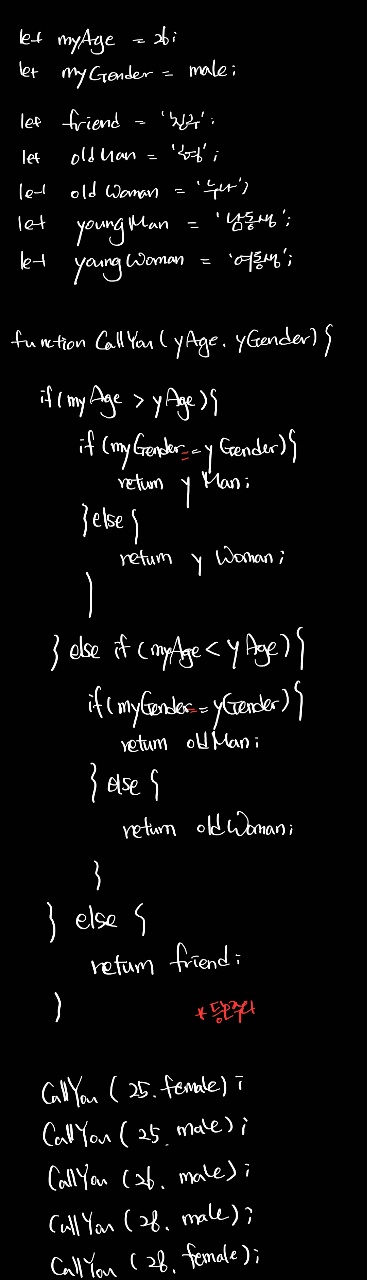 let myAge = 26;
let myGender = male;
let friend = '친구';
let oldMan = '형';
let oldWoman = '누나';
let youngMan = '남동생';
let youngWoman = '여동생';
function CallYou (yAge, yGender) {
if (myAge > yAge) {
if (myGender == yGender) {
return yMan;
} else {
return yWoman;
}
} else if (myAge < yAge) {
if (myGender == yGender) {
return oldMan;
} else {
return oldWoman;
}
} else {
return friend;
}
CallYou (25, female);
CallYou (25, male);
CallYou (26, male);
CallYou (28, male);
CallYou (28, female);